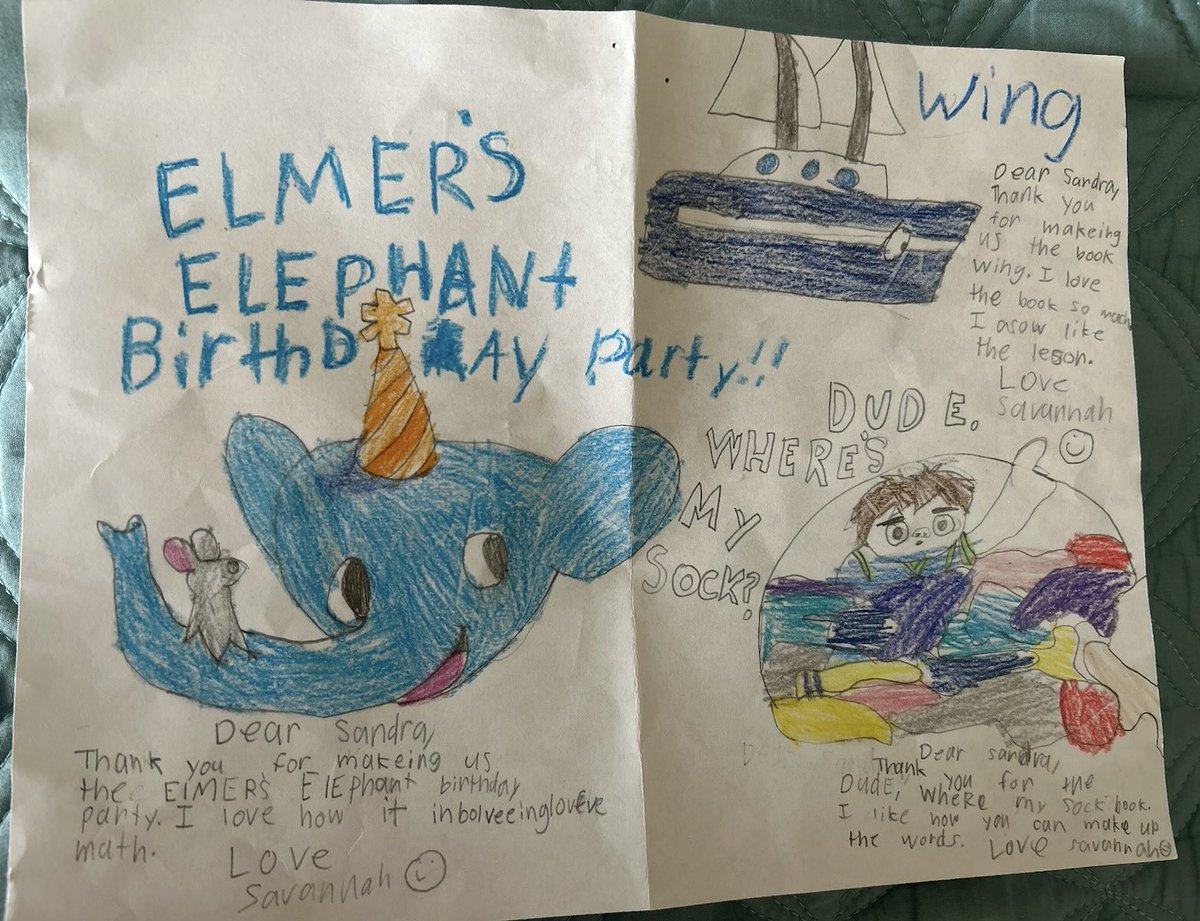 ELMER'S
ELEPHANt
BirthDAy party!!
Dear Sandra,
Thank you for makeing us
the ElMER's ElEphant birthday
party. I love how it
math.
Love
Savannah
wing
Dear Sandra,
Thank you
for makeing
us the book
wing. I love
the book so much
I asow like
the leson.
Love
Savannah
DUDE.
WHERE'S
My
SOCK?
Dear sandra,
Thank you for the
Dude, where my sock book.
I like how you can make up
the words. Love savannah